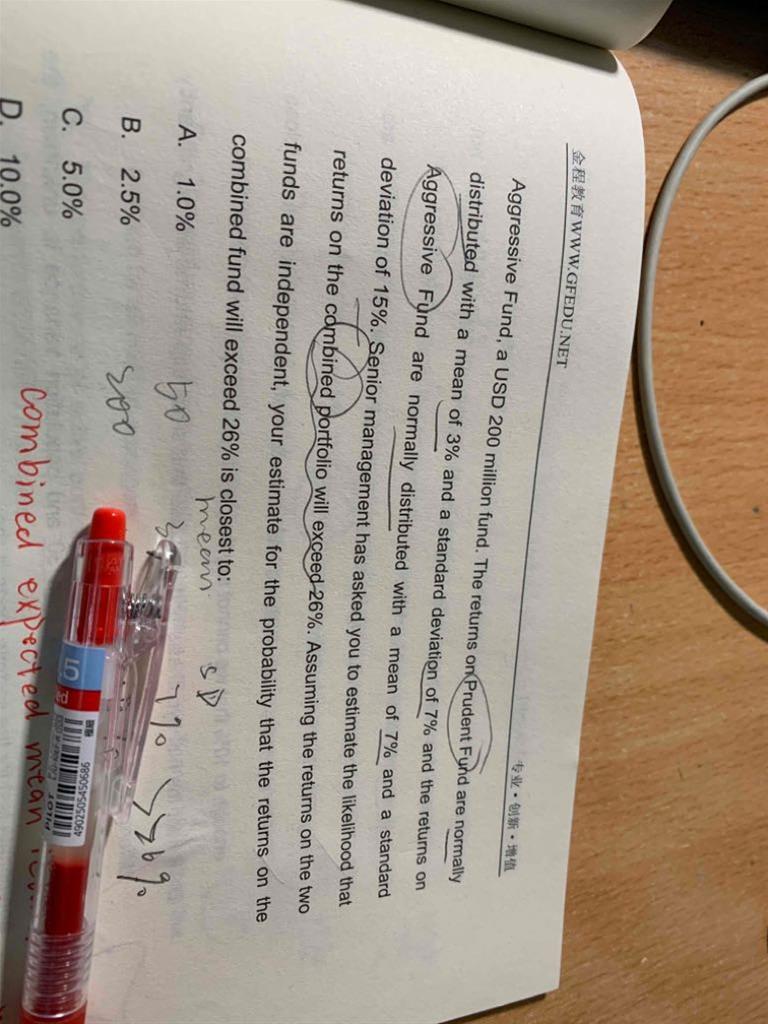 金程教育WWW.GFEDU.NET
专业·创新·增值
Aggressive Fund, a USD 200 million fund. The returns on Prudent Fund are normally
distributed with a mean of 3% and a standard deviation of 7% and the returns on
Aggressive Fund are normally distributed with a mean of 7% and a standard
deviation of 15%. Senior management has asked you to estimate the likelihood that
returns on the combined portfolio will exceed 26%. Assuming the returns on the two
funds are independent, your estimate for the probability that the returns on the
combined fund will exceed 26% is closest to:
mean SD
A. 1.0%
50 3 7% >26%
B. 2.5%
200
C. 5.0%
D. 10.0%
combined expected mean
50
PILOT
4902505450686